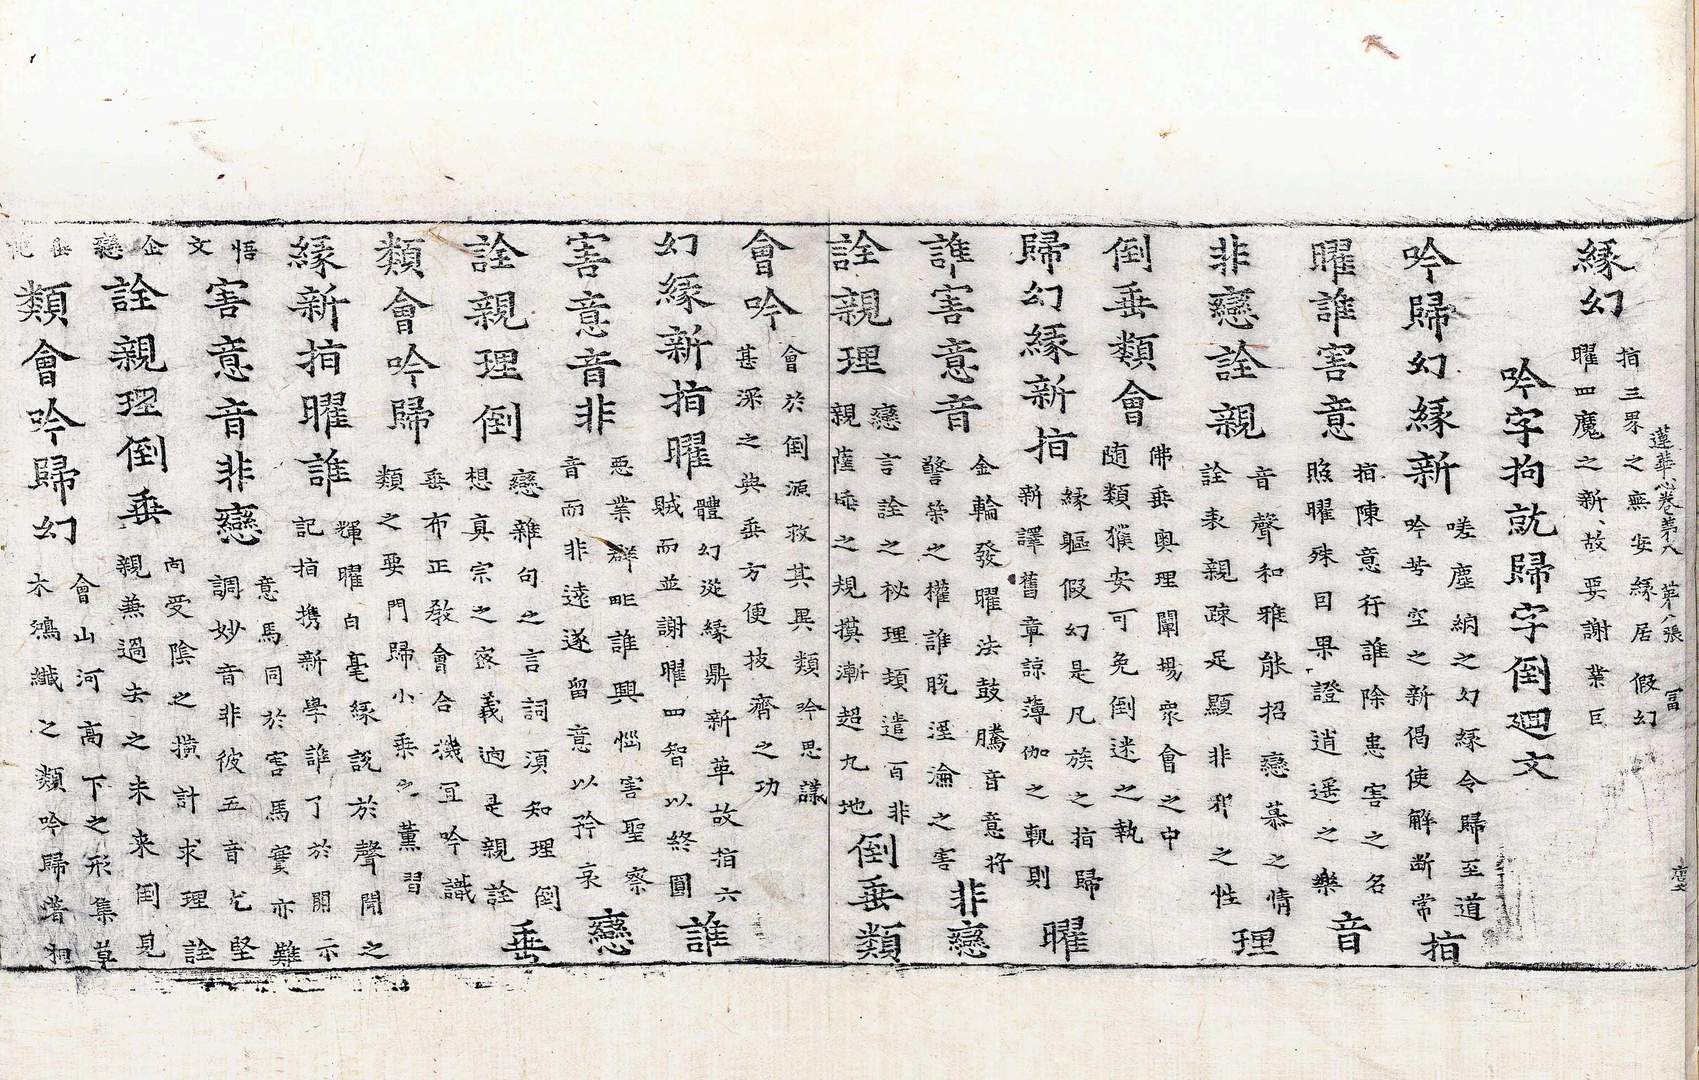 蓮華心卷第八 第八張 冨
緣幻
指三界之無安緣居假幻
曜四魔之新故要謝業臣
吟字拘就歸字倒迴文
吟歸幻緣新
嗟塵納之幻緣令歸至道
吟苦空之新偈使解斷常
指
曜誰害意
指陳意行誰除患害之名
照曜殊因果證逍遥之樂
音
非戀詮親
音聲和雅能招戀慕之情
詮表親疎足顯非邪之性
理
倒垂類會
佛垂奧理闡揚衆會之中
随類獲安可免倒迷之執
歸幻緣新指
緣軀假幻是凡族之指歸
新譯舊章諒薄伽之軌則
曜
誰害意音
金輪發曜法鼓騰音意將
警策之權誰脫淫淪之害
非戀
詮親理
戀言詮之秘理頓遣百非
親薩埵之規摸漸超九地
倒垂類
會吟
會於倒源救其異類吟思議
甚深之與垂方便拔齊之功
幻緣新指曜
體幻從緣鼎新革故指六
賊而並謝曜四智以終圓
誰
害意音非
惡業群眠誰興惱害聖察
音而非遠遂留意以矜哀
戀
詮親理倒
戀雜句之言詞須知理倒
想真宗之密義迺是親詮
垂
類會吟歸
垂布正教會合機宜吟識
類之要門歸小乘之薰習
緣新指曜誰
輝曜白毫緣說於聲聞之
記指携新學誰了於開示
悟
文
害意音非戀
意馬同於害馬實亦難
調妙音非彼五音堅詮
企
戀
詮親理倒垂
向受陰之橫計求理
親蕪過去之未来倒見
垂
類會吟歸幻
會山河高下之形集草
木鴻纖之類吟歸普相